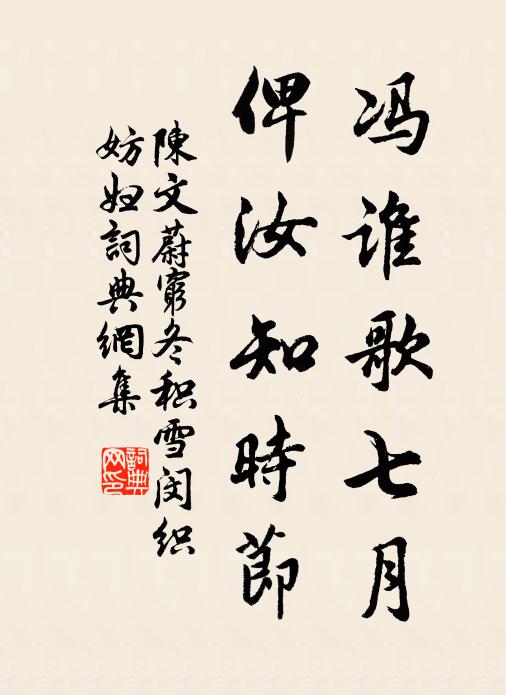 冯谁歌七月
俾汝知時節
陳文蔚窮冬积雪闵织
妨妲詞典網集
詞典网印